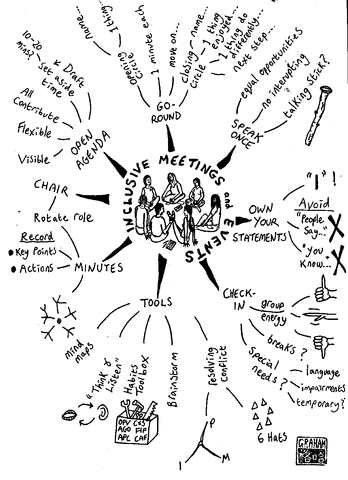 INCLUSIVE MEETINGS and EVENTS
GO-
ROUND
opening
circle
name...
1 thing...
1 minute each
move on...
closing
circle
name...
1 thing
enjoyed...
1 thing to do
differently...
next step...
SPEAK
ONCE
equal opportunities
no interrupting
talking stick?
OWN
YOUR
STATEMENTS
"I"!
Avoid
"People
Say..."
"You
Know..."
CHECK-
IN
group
energy
breaks?
Special
needs?
language
impairments
temporary?
TOOLS
resolving
conflict
P
I
M
6 Hats
Brainstorm
Habits
Toolbox
OPV C&S
AGO FIP
APC CAF
"Think &
Listen"
mind
maps
MINUTES
Rotate role
Record
Key Points
Actions
CHAIR
OPEN
AGENDA
10-20
mins?
Draft
set aside
time
All
Contribute
Flexible
Visible
GRAHAM